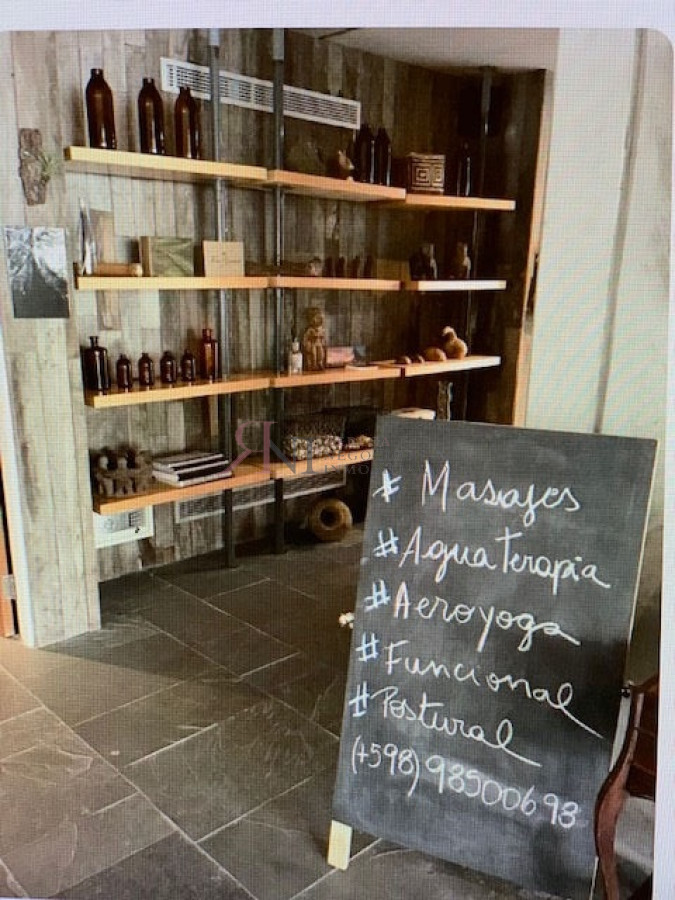 # Masajes
# Agua Terapia
# Aeroyoga
# Funcional
# Postural
(+598) 98500693